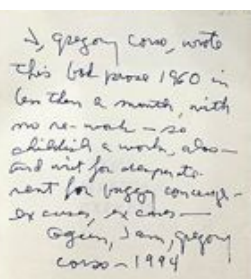 I, gregory corso, wrote
this bad prose 1960 in
less then a month, with
no re-work – so
childish a work, alas –
and writ for desperate
rent for
excuses, excuses –
Again, I am, gregory
corso – 1994